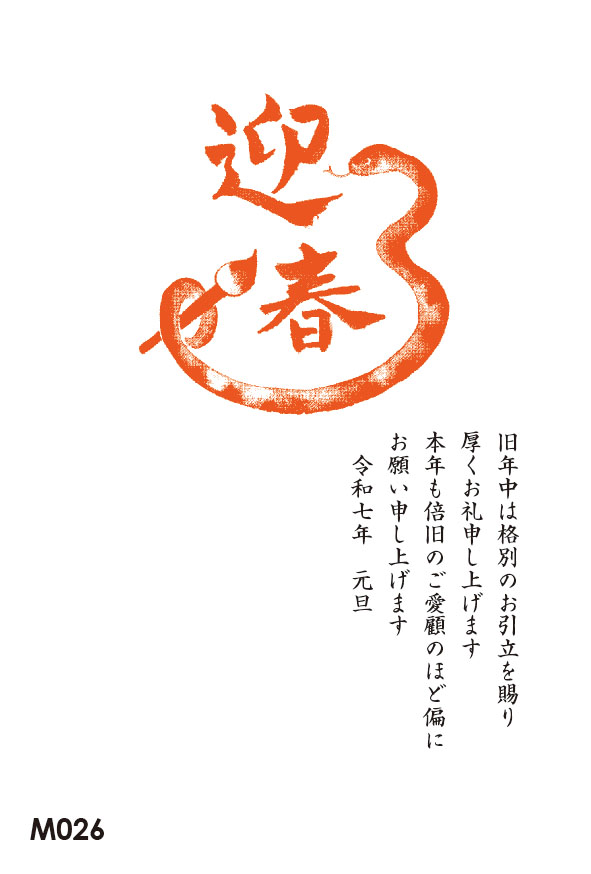 迎
春
旧年中は格別のお引立を賜り
厚くお礼申し上げます
本年も倍旧のご愛顧のほど偏に
お願い申し上げます
令和七年　元旦
M026